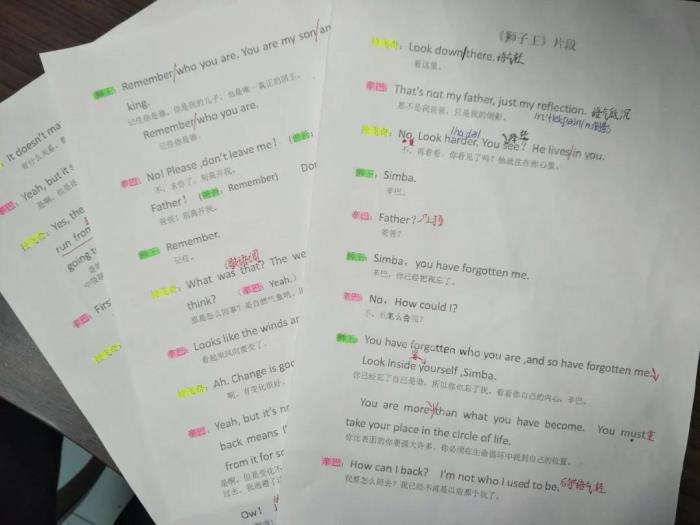 《狮子王》片段
拉飞奇：Look down/there. 语气轻
看这里。
辛巴：That's not my father, just my reflection. 语气低沉
那不是我爸爸，只是我的倒影。
拉飞奇：No. Look harder. You see? He lives in you.
不，再看看，你看见了吗？他就住在你心里。
狮王：Simba.
辛巴。
辛巴：Father? 上扬
爸爸？
狮王：Simba，you have forgotten me.
辛巴，你已经把我忘了。
辛巴：No，How could I?
不，我怎么会呢？
狮王：You have forgotten who you are ,and so have forgotten me.
Look inside yourself ,Simba.
你已经忘了自己是谁，所以你也忘了我。看看你自己的内心，辛巴。
You are more than what you have become. You must 重
take your place in the circle of life.
你比表面的你要强大许多，你必须在生命循环中找到自己的位置。
辛巴：How can I back? I'm not who I used to be.
我要怎么回去？我已经不再是以前那个我了。
狮王：Remember/who you are. You are my son/an
king.
记住你是谁，你是我的儿子，也是唯一真正的国王。
Remember/who you are.
记住你是谁。
辛巴：No! Please ,don't leave me!
不，求你了，别离开我。
Father! (爸爸：Remember) Don
爸爸！别离开我。
狮王：Remember.
记住。
拉飞奇：What was that? The we
think? (辛巴：Yeah.)
那是怎么回事？是自然气象吧，
辛巴：Looks like the winds ar
看起来风向要变了。
拉飞奇：Ah. Change is goo
啊，有变化很好。
辛巴：Yeah, but it's no
back means I'
from it for so
是啊，但是变化不
过去。我逃避了这
Ow!
It doesn't ma
有什么关系，
辛巴：Yeah, but it
是啊，但是
拉飞奇：Yes, the
run from
going to
辛巴：First